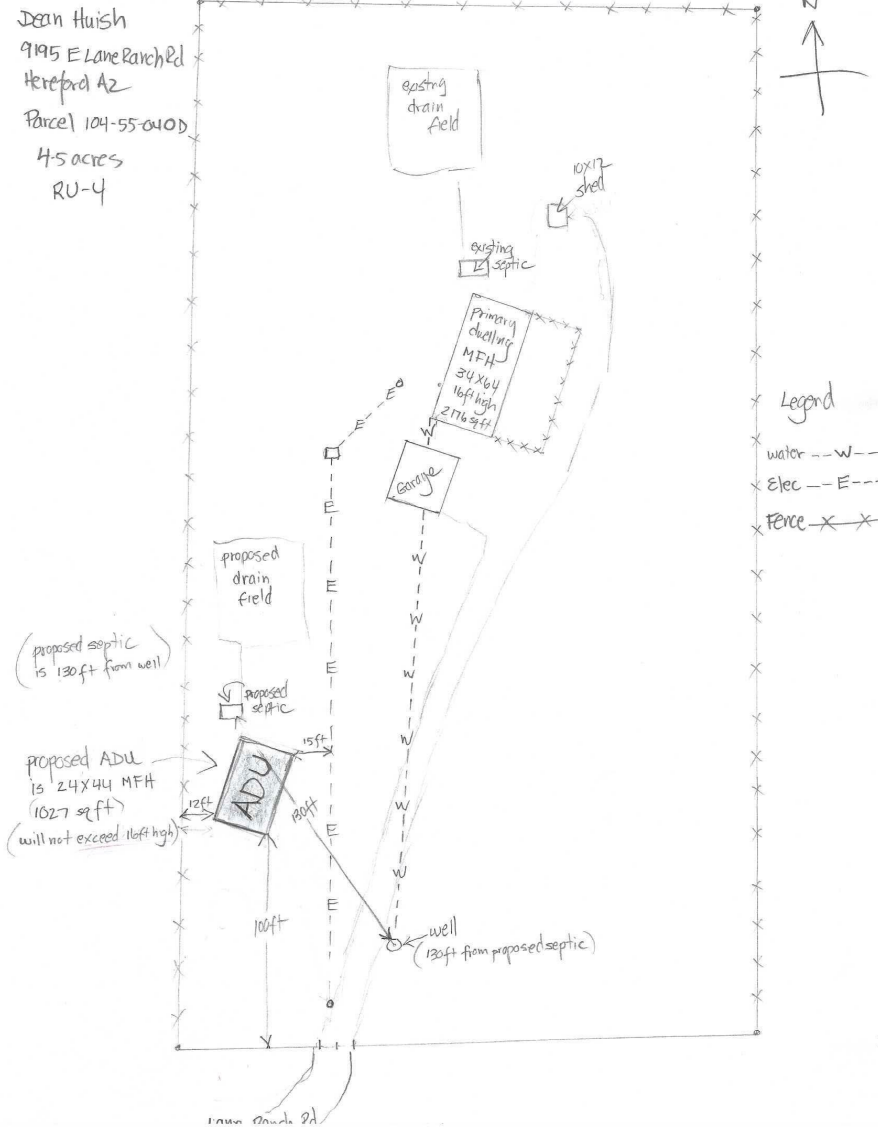 Dean Huish
9195 E Lane Ranch Rd
Hereford AZ
Parcel 104-55-040D
4.5 acres
RU-4
N
existng
drain
field
10X12
shed
existing
septic
Primary
dwelling
MFH
34X64
16ft high
2176 sqft
E
E
W
Garage
Legend
water --W--
Elec --E---
Fence X X
E
E
E
E
E
W
W
W
W
W
W
proposed
drain
field
(proposed septic
is 130ft from well)
proposed
septic
15ft
proposed ADU
is 24X44 MFH
(1027 sqft)
(will not exceed 16ft high)
12ft
ADU
130ft
100ft
well
(130ft from proposed septic)
Lane Ranch Rd